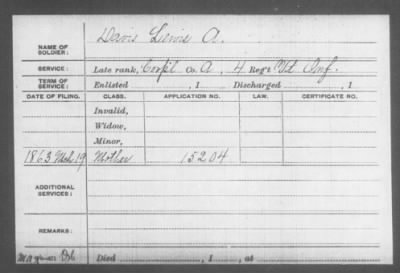 Davis Lewis A.
NAME OF SOLDIER:
SERVICE: Late rank, Corp'l Co. A, 4 Reg't Vt Inf.
TERM OF SERVICE: Enlisted , 1 Discharged , 1
DATE OF FILING. CLASS. APPLICATION NO. LAW. CERTIFICATE NO.
Invalid,
Widow,
Minor,
1863 Mch 19 Mother 15204
ADDITIONAL SERVICES:
REMARKS:
Died , 1 , at